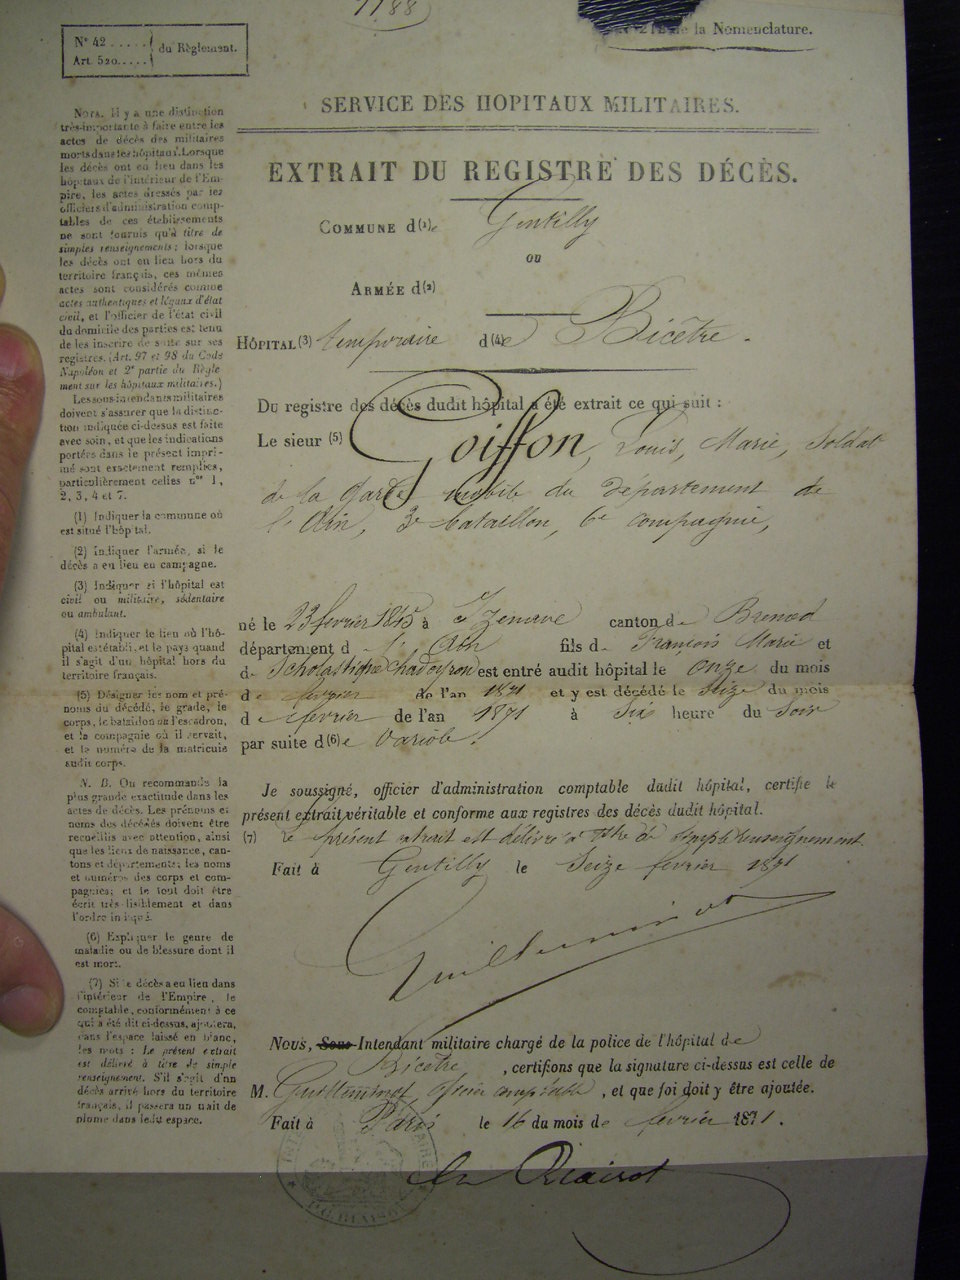 1188
N° 42 ..... du Règlement.
Art. 520.....
de la Nomenclature.
SERVICE DES HOPITAUX MILITAIRES.
EXTRAIT DU REGISTRE DES DÉCÈS.
COMMUNE d(1)e Gentilly
OU
ARMÉE d(2)
HÔPITAL (3) temporaire d(4)e Bicêtre.
Du registre des décès dudit hôpital a été extrait ce qui suit :
Le sieur (5) Goiffon, Louis, Marie, Soldat
de la Garde mobile du département de
l'Ain, 3e bataillon, 6e compagnie,
né le 23 février 1845 à Izenave canton de Brenod
département d l'Ain fils d François Marie et
d Scholastique Chadeyron est entré audit hôpital le onze du mois
d février de l'an 1871 et y est décédé le seize du mois
d e février de l'an 1871 à Six heure du Soir
par suite d(6)e Variole.
Je soussigné, officier d'administration comptable dudit hôpital, certifie le
présent extrait véritable et conforme aux registres des décès dudit hôpital.
(7) Le présent extrait est délivré à titre de simple renseignement
Fait à Gentilly le Seize février 1871
Guilleminot
Nous, Sous-Intendant militaire chargé de la police de l'hôpital de
Bicêtre, certifions que la signature ci-dessus est celle de
M. Guilleminot, officier comptable, et que foi doit y être ajoutée.
Fait à Paris le 16 du mois de février 1871.
NOTA. Il y a une distinction
très-importante à faire entre les
actes de décès des militaires
morts dans les hôpitaux. Lorsque
les décès ont eu lieu dans les
hôpitaux de l'intérieur de l'Em-
pire, les actes dressés par les
officiers d'administration comp-
tables de ces établissements
ne sont fournis qu'à titre de
simples renseignements; lorsque
les décès ont eu lieu hors du
territoire français, ces mêmes
actes sont considérés comme
actes authentiques et légaux d'état
civil, et l'officier de l'état civil
du domicile des parties est tenu
de les inscrire de suite sur ses
registres. (Art. 97 et 98 du Code
Napoléon et 2e partie du Règle-
ment sur les hôpitaux militaires.)
Les sous-intendants militaires
doivent s'assurer que la distinc-
tion indiquée ci-dessus est faite
avec soin, et que les indications
portées dans le présent impri-
mé sont exactement remplies,
particulièrement celles nos 1,
2, 3, 4 et 7.
(1) Indiquer la commune où
est situé l'hôpital.
(2) Indiquer l'armée, si le
décès a eu lieu en campagne.
(3) Indiquer si l'hôpital est
civil ou militaire, sédentaire
ou ambulant.
(4) Indiquer le lieu où l'hô-
pital est établi, et le pays quand
il s'agit d'un hôpital hors du
territoire français.
(5) Désigner les nom et pré-
noms du décédé, le grade, le
corps, le bataillon ou l'escadron,
et la compagnie où il servait,
et le numéro de la matricule
audit corps.
N. B. On recommande la
plus grande exactitude dans les
actes de décès. Les prénoms et
noms des décédés doivent être
recueillis avec attention, ainsi
que les lieux de naissance, can-
tons et départements; les noms
et numéros des corps et com-
pagnies; et le tout doit être
écrit très-lisiblement et dans
l'ordre indiqué.
(6) Expliquer le genre de
maladie ou de blessure dont il
est mort.
(7) Si le décès a eu lieu dans
l'intérieur de l'Empire, le
comptable, conformément à ce
qui a été dit ci-dessus, ajoutera,
dans l'espace laissé en blanc,
les mots : Le présent extrait
est délivré à titre de simple
renseignement. S'il s'agit d'un
décès arrivé hors du territoire
français, il passera un trait de
plume dans ledit espace.